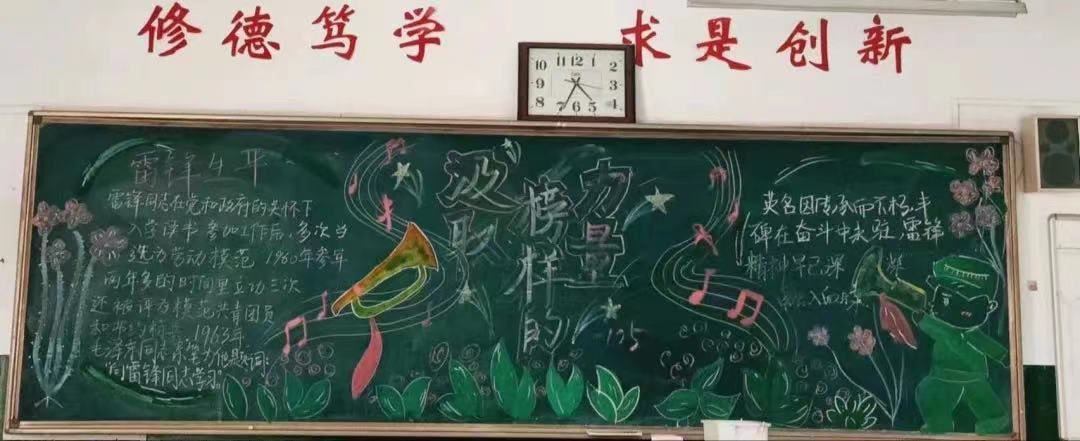 修德笃学 求是创新
10 11 12 1 2 3 4 5 6 7 8 9
雷锋生平
雷锋同志在党和政府的关怀下
入学读书 参加工作后,多次当
选为劳动模范 1960年参军
两年多的时间里立功三次
还被评为模范共青团员
1963年
毛泽东同志亲笔为他题词:
"向雷锋同志学习"
汲取
榜样的
力量
英名因传承而不朽,丰
碑在奋斗中永驻,雷锋
精神早已深